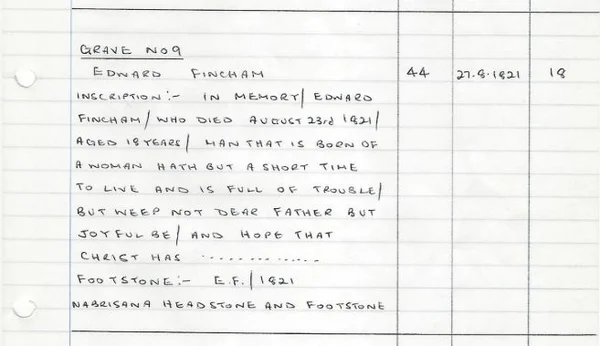 GRAVE NO 9
EDWARD FINCHAM 44 27.8.1821 18
INSCRIPTION:- IN MEMORY/ EDWARD
FINCHAM/ WHO DIED AUGUST 23rd 1821/
AGED 18 YEARS/ MAN THAT IS BORN OF
A WOMAN HATH BUT A SHORT TIME
TO LIVE AND IS FULL OF TROUBLE/
BUT WEEP NOT DEAR FATHER BUT
JOYFUL BE/ AND HOPE THAT
CHRIST HAS .............
FOOTSTONE:- E.F./ 1821
NABRISANA HEADSTONE AND FOOTSTONE